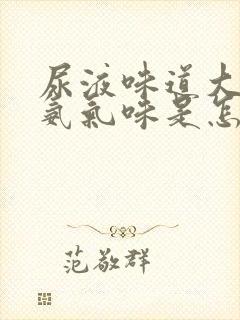 尿液味道大
氨气味是怎
范敬群